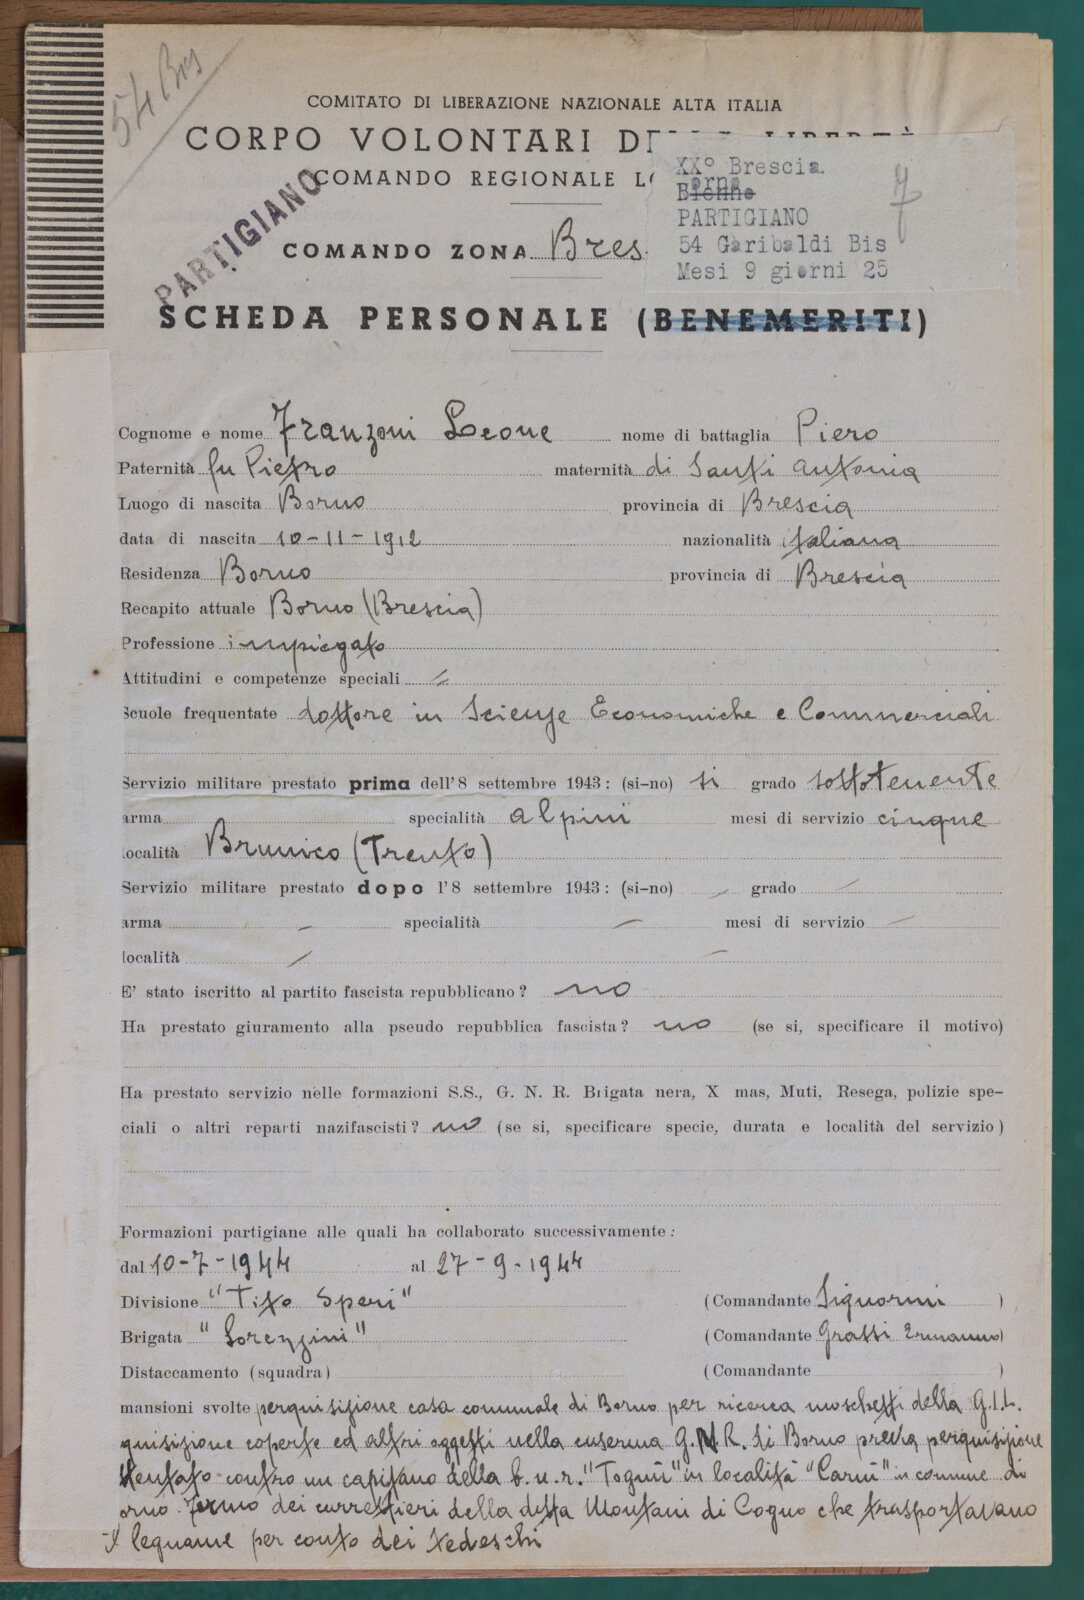 54 Bis
COMITATO DI LIBERAZIONE NAZIONALE ALTA ITALIA
CORPO VOLONTARI
COMANDO REGIONALE
PARTIGIANO
XXº Brescia.
orno
Bienno
PARTIGIANO
54 Garibaldi Bis
Mesi 9 giorni 25
7
COMANDO ZONA Bres
SCHEDA PERSONALE (BENEMERITI)
Cognome e nome Franzoni Leone nome di battaglia Piero
Paternità fu Pietro maternità di Santi Antonia
Luogo di nascita Borno provincia di Brescia
data di nascita 10-11-1912 nazionalità italiana
Residenza Borno provincia di Brescia
Recapito attuale Borno (Brescia)
Professione impiegato
Attitudini e competenze speciali
Scuole frequentate dottore in Scienze Economiche e Commerciali
Servizio militare prestato prima dell'8 settembre 1943: (si-no) si grado sottotenente
arma specialità alpini mesi di servizio cinque
località Brunico (Trento)
Servizio militare prestato dopo l'8 settembre 1943: (si-no) - grado -
arma - specialità - mesi di servizio -
località - -
E' stato iscritto al partito fascista repubblicano? no
Ha prestato giuramento alla pseudo repubblica fascista? no (se si, specificare il motivo)
Ha prestato servizio nelle formazioni S.S., G. N. R. Brigata nera, X mas, Muti, Resega, polizie spe-
ciali o altri reparti nazifascisti? no (se si, specificare specie, durata e località del servizio)
Formazioni partigiane alle quali ha collaborato successivamente:
dal 10-7-1944 al 27-9-1944
Divisione "Tito Speri" (Comandante Signorini )
Brigata "Lorenzini" (Comandante Grassi Ermanno)
Distaccamento (squadra) (Comandante )
mansioni svolte perquisizione casa comunale di Borno per ricerca moschetti della G.I.L.
quisizione coperte ed altri oggetti nella caserma G.N.R. di Borno previa perquisizione
ttentato contro un capitano della b.u.r. "Tognù" in località "Carnù" in comune di
orno. Fermo dei carrettieri della ditta Montani di Cogno che trasportavano
il legname per conto dei tedeschi